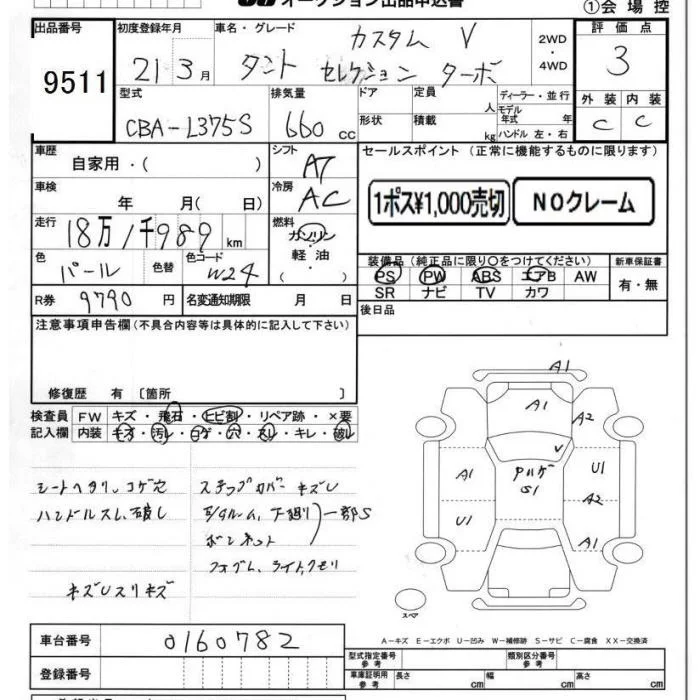 オークション出品申込書
①会場控
出品番号
9511
初度登録年月
21 3月
車名・グレード
カスタム V
タント セレクション ターボ
2WD
・
4WD
評価点
3
外装 内装
C C
型式
CBA-L375S
排気量
660 cc
ドア
形状
定員 人
積載 kg
ディーラー・並行
モデル年式 年
ハンドル 左・右
車歴
自家用・( )
シフト
AT
車検
年 月( 日)
冷房
AC
走行
18万/千989 km
燃料
ガソリン
・
軽油
( )
色
パール
色替
色コード
W24
R券 9790 円
名変通知期限 月 日
セールスポイント(正常に機能するものに限ります)
1ポス¥1,000売切
NOクレーム
装備品(純正品に限り○をつけてください)
PS PW ABS エアB AW
SR ナビ TV カワ
新車保証書
有・無
後日品
注意事項申告欄(不具合内容等は具体的に記入して下さい)
修復歴 有 〔箇所 〕
検査員記入欄
FW キズ・飛石・ヒビ割・リペア跡・×要
内装 キズ・汚レ・コゲ・穴・スレ・キレ・破レ
シートヘタリ、コゲ穴
ハンドルスレ、破レ
キズUスリキズ
ステップカバー キズU
E/gルーム、下廻り
ボンネット
一部S
フォグム、ライトクモリ
A1
A1
A2
V
A1
Pハゲ
S1
U1
A2
U1
A1
スペア
A-キズ E-エクボ U-凹み W-補修跡 S-サビ C-腐食 XX-交換済
車台番号
0160782
登録番号
型式指定番号
参考
類別区分番号
参考
車庫証明用
参考
長さ cm
幅 cm
高さ cm